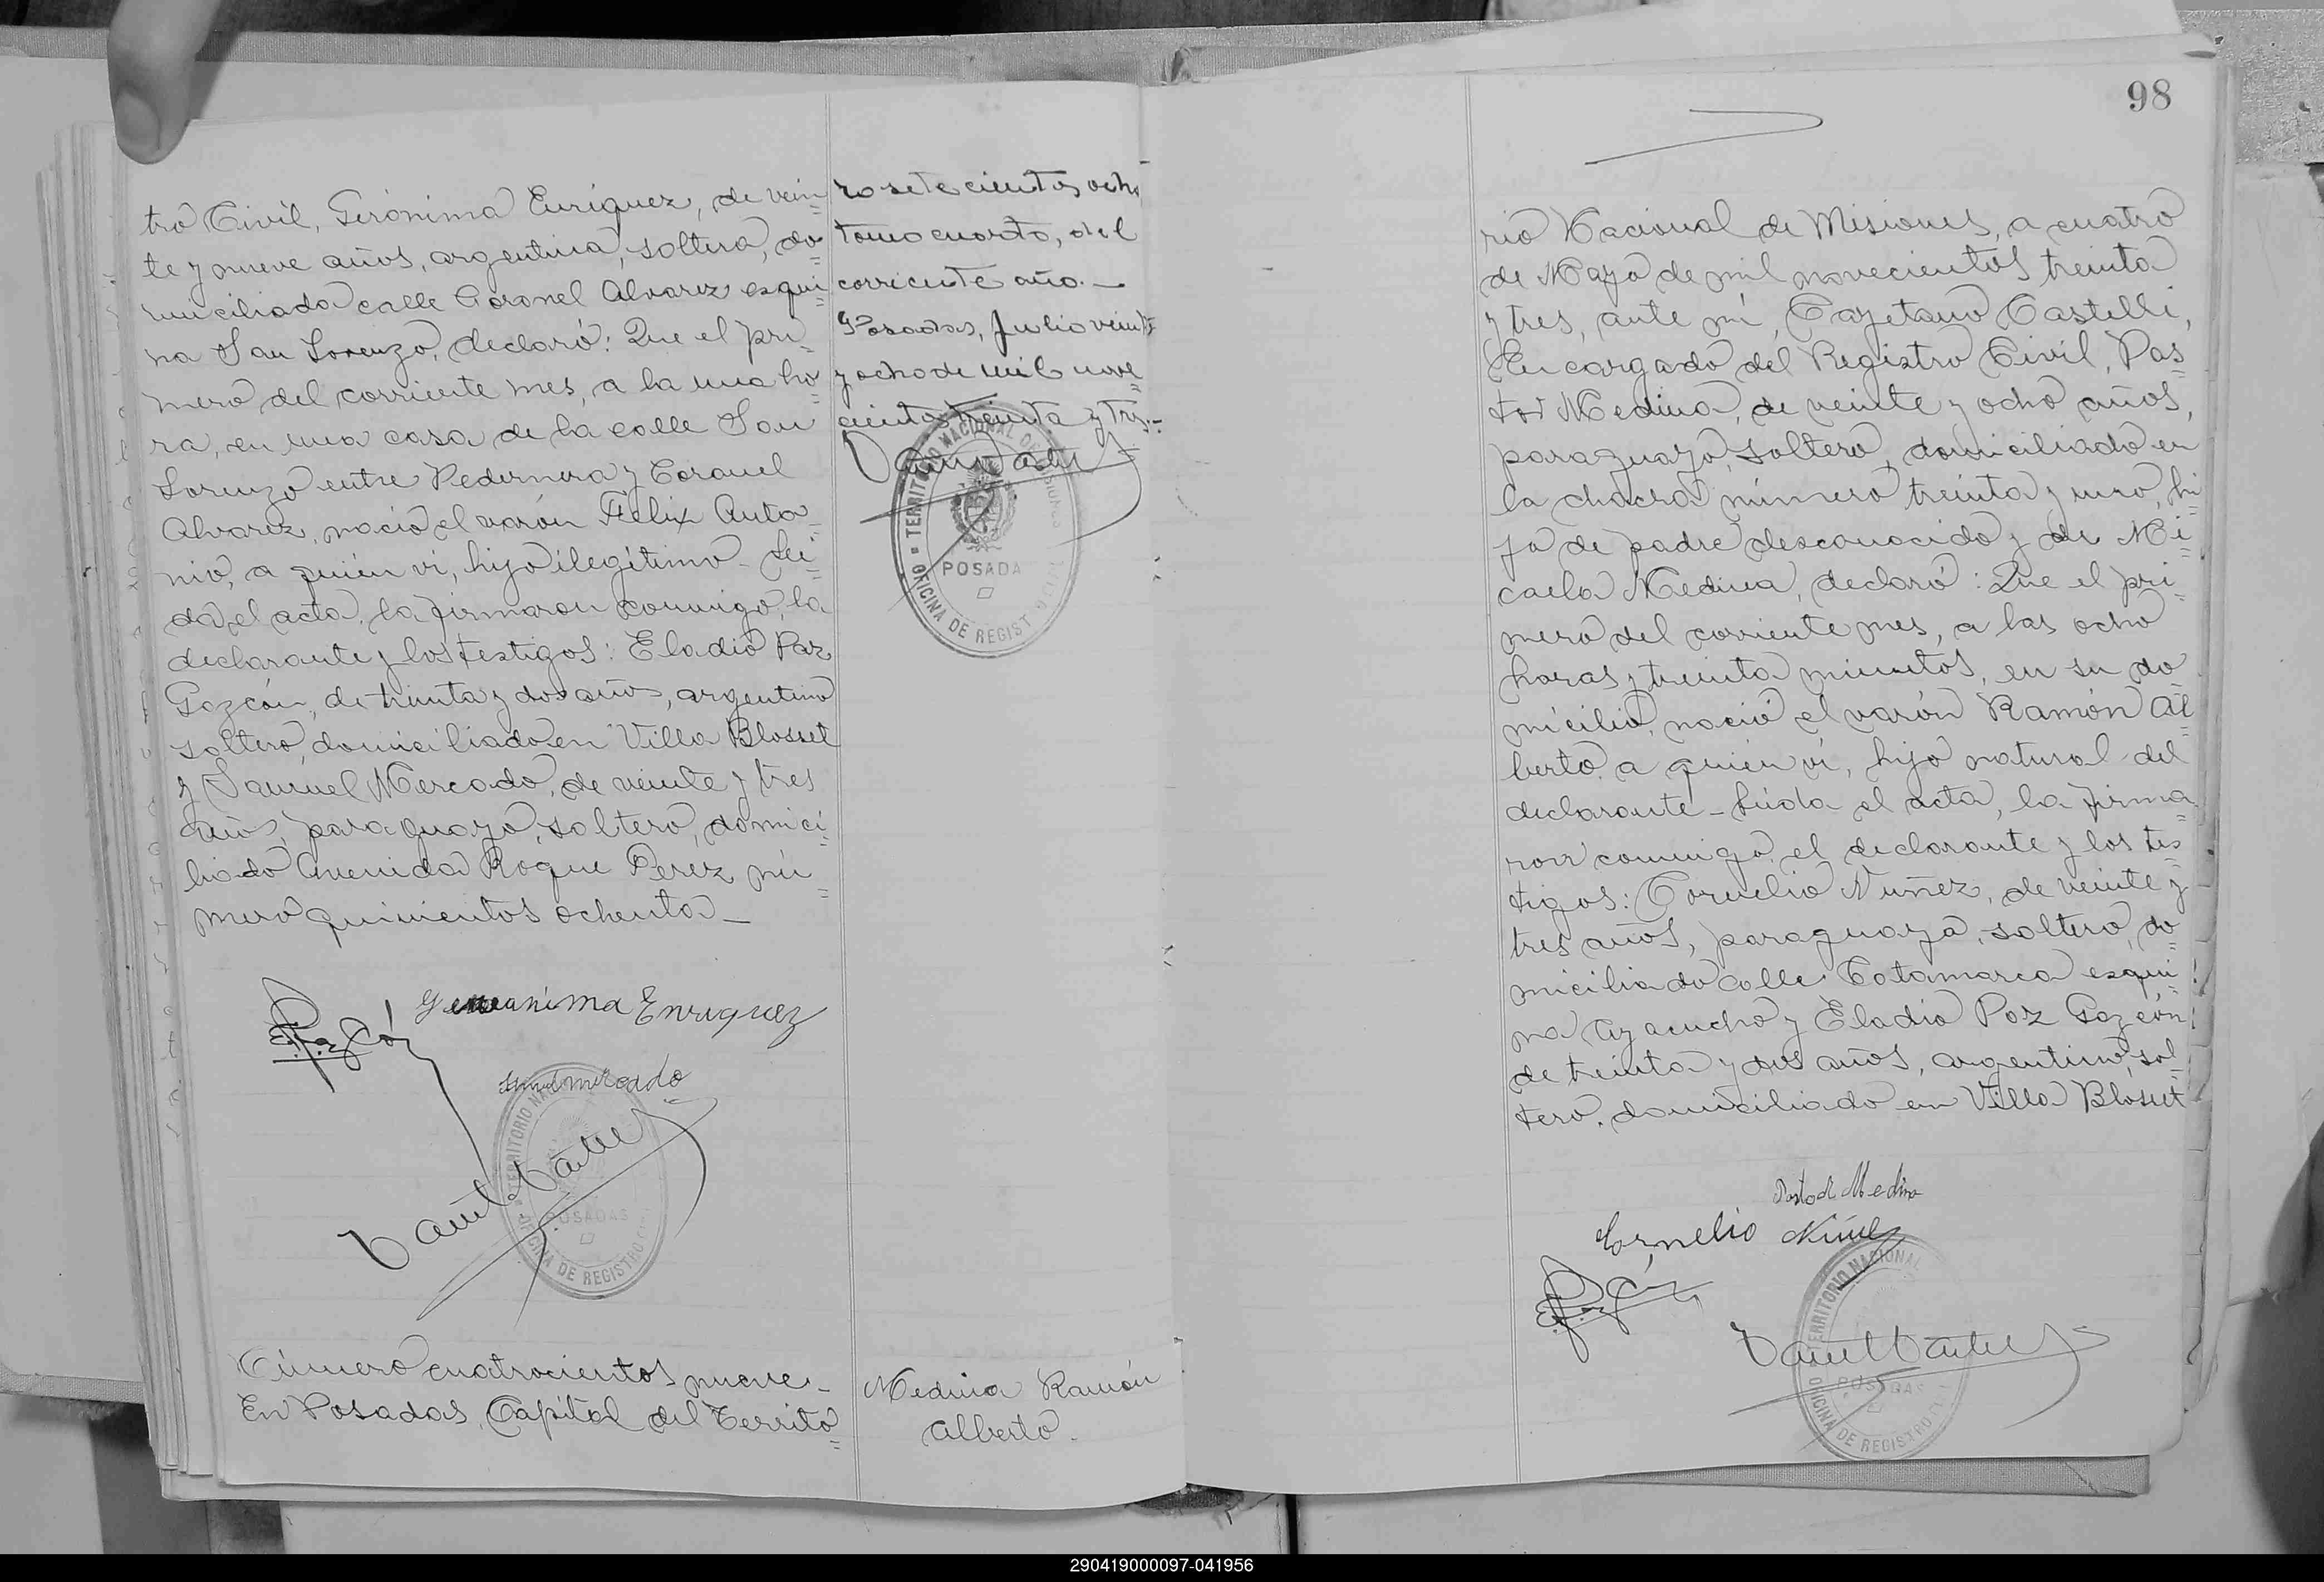 tro Civil, Gerónima Enriquez, de vein=
te y nueve años, argentina, soltera, do=
miciliada calle Coronel Alvarez esqui=
na San Lorenzo, declaró: Que el pri=
mero del corriente mes, a la una ho=
ra, en una casa de la calle San
Lorenzo entre Pedernera y Coronel
Alvarez, nació el varón Félix Anto=
nio, a quién vi, hijo ilegítimo - Leí=
da el acta, la firmaron conmigo, la
declarante y los testigos: Eladio Paz
Gazcón, de treinta y dos años, argentino
soltero, domiciliado en Villa Blosset
y Samuel Mercado, de veinte y tres
años, paraguayo, soltero, domici=
liado Avenida Roque Perez nú=
mero quinientos ochenta -
Enriquez
mercado
TERRITORIO NA
POSADAS
OFICINA DE REGISTRO
Número cuatrocientos nueve -
En Posadas, Capital del Territo=
ro setecientos ocho
tomo cuarto, del
corriente año. -
Posadas, Julio veinte
y ocho de mil nove=
cientos treinta y tres.-
TERRITORIO NACIONAL DE MISIONES
POSADA
OFICINA DE REGIST
Medina Ramón
Alberto.
98
rio Nacional de Misiones, a cuatro
de Mayo de mil novecientos treinta
y tres, ante mí, Cayetano Castelli,
Encargado del Registro Civil, Pas=
tor Medina, de veinte y ocho años,
paraguayo, soltero, domiciliado en
la chacra número treinta y uno, hi=
jo de padre desconocido y de Mi=
caela Medina, declaró: Que el pri=
mero del corriente mes, a las ocho
horas y treinta minutos, en su do=
micilio, nació el varón Ramón Al=
berto, a quién vi, hijo natural del
declarante - Leída el acta, la firma
ron conmigo, el declarante y los tes=
tigos: Cornelio Nuñez, de veinte y
tres años, paraguayo, soltero, do=
miciliado calle Catamarca esqui=
na Ayacucho y Eladio Paz Gazcón
de treinta y dos años, argentino, sol=
tero, domiciliado en Villa Blosset
Pastor Medina
Cornelio Núñez
TERRITORIO NACIONAL
POSADAS
OFICINA DE REGISTRO
290419000097-041956